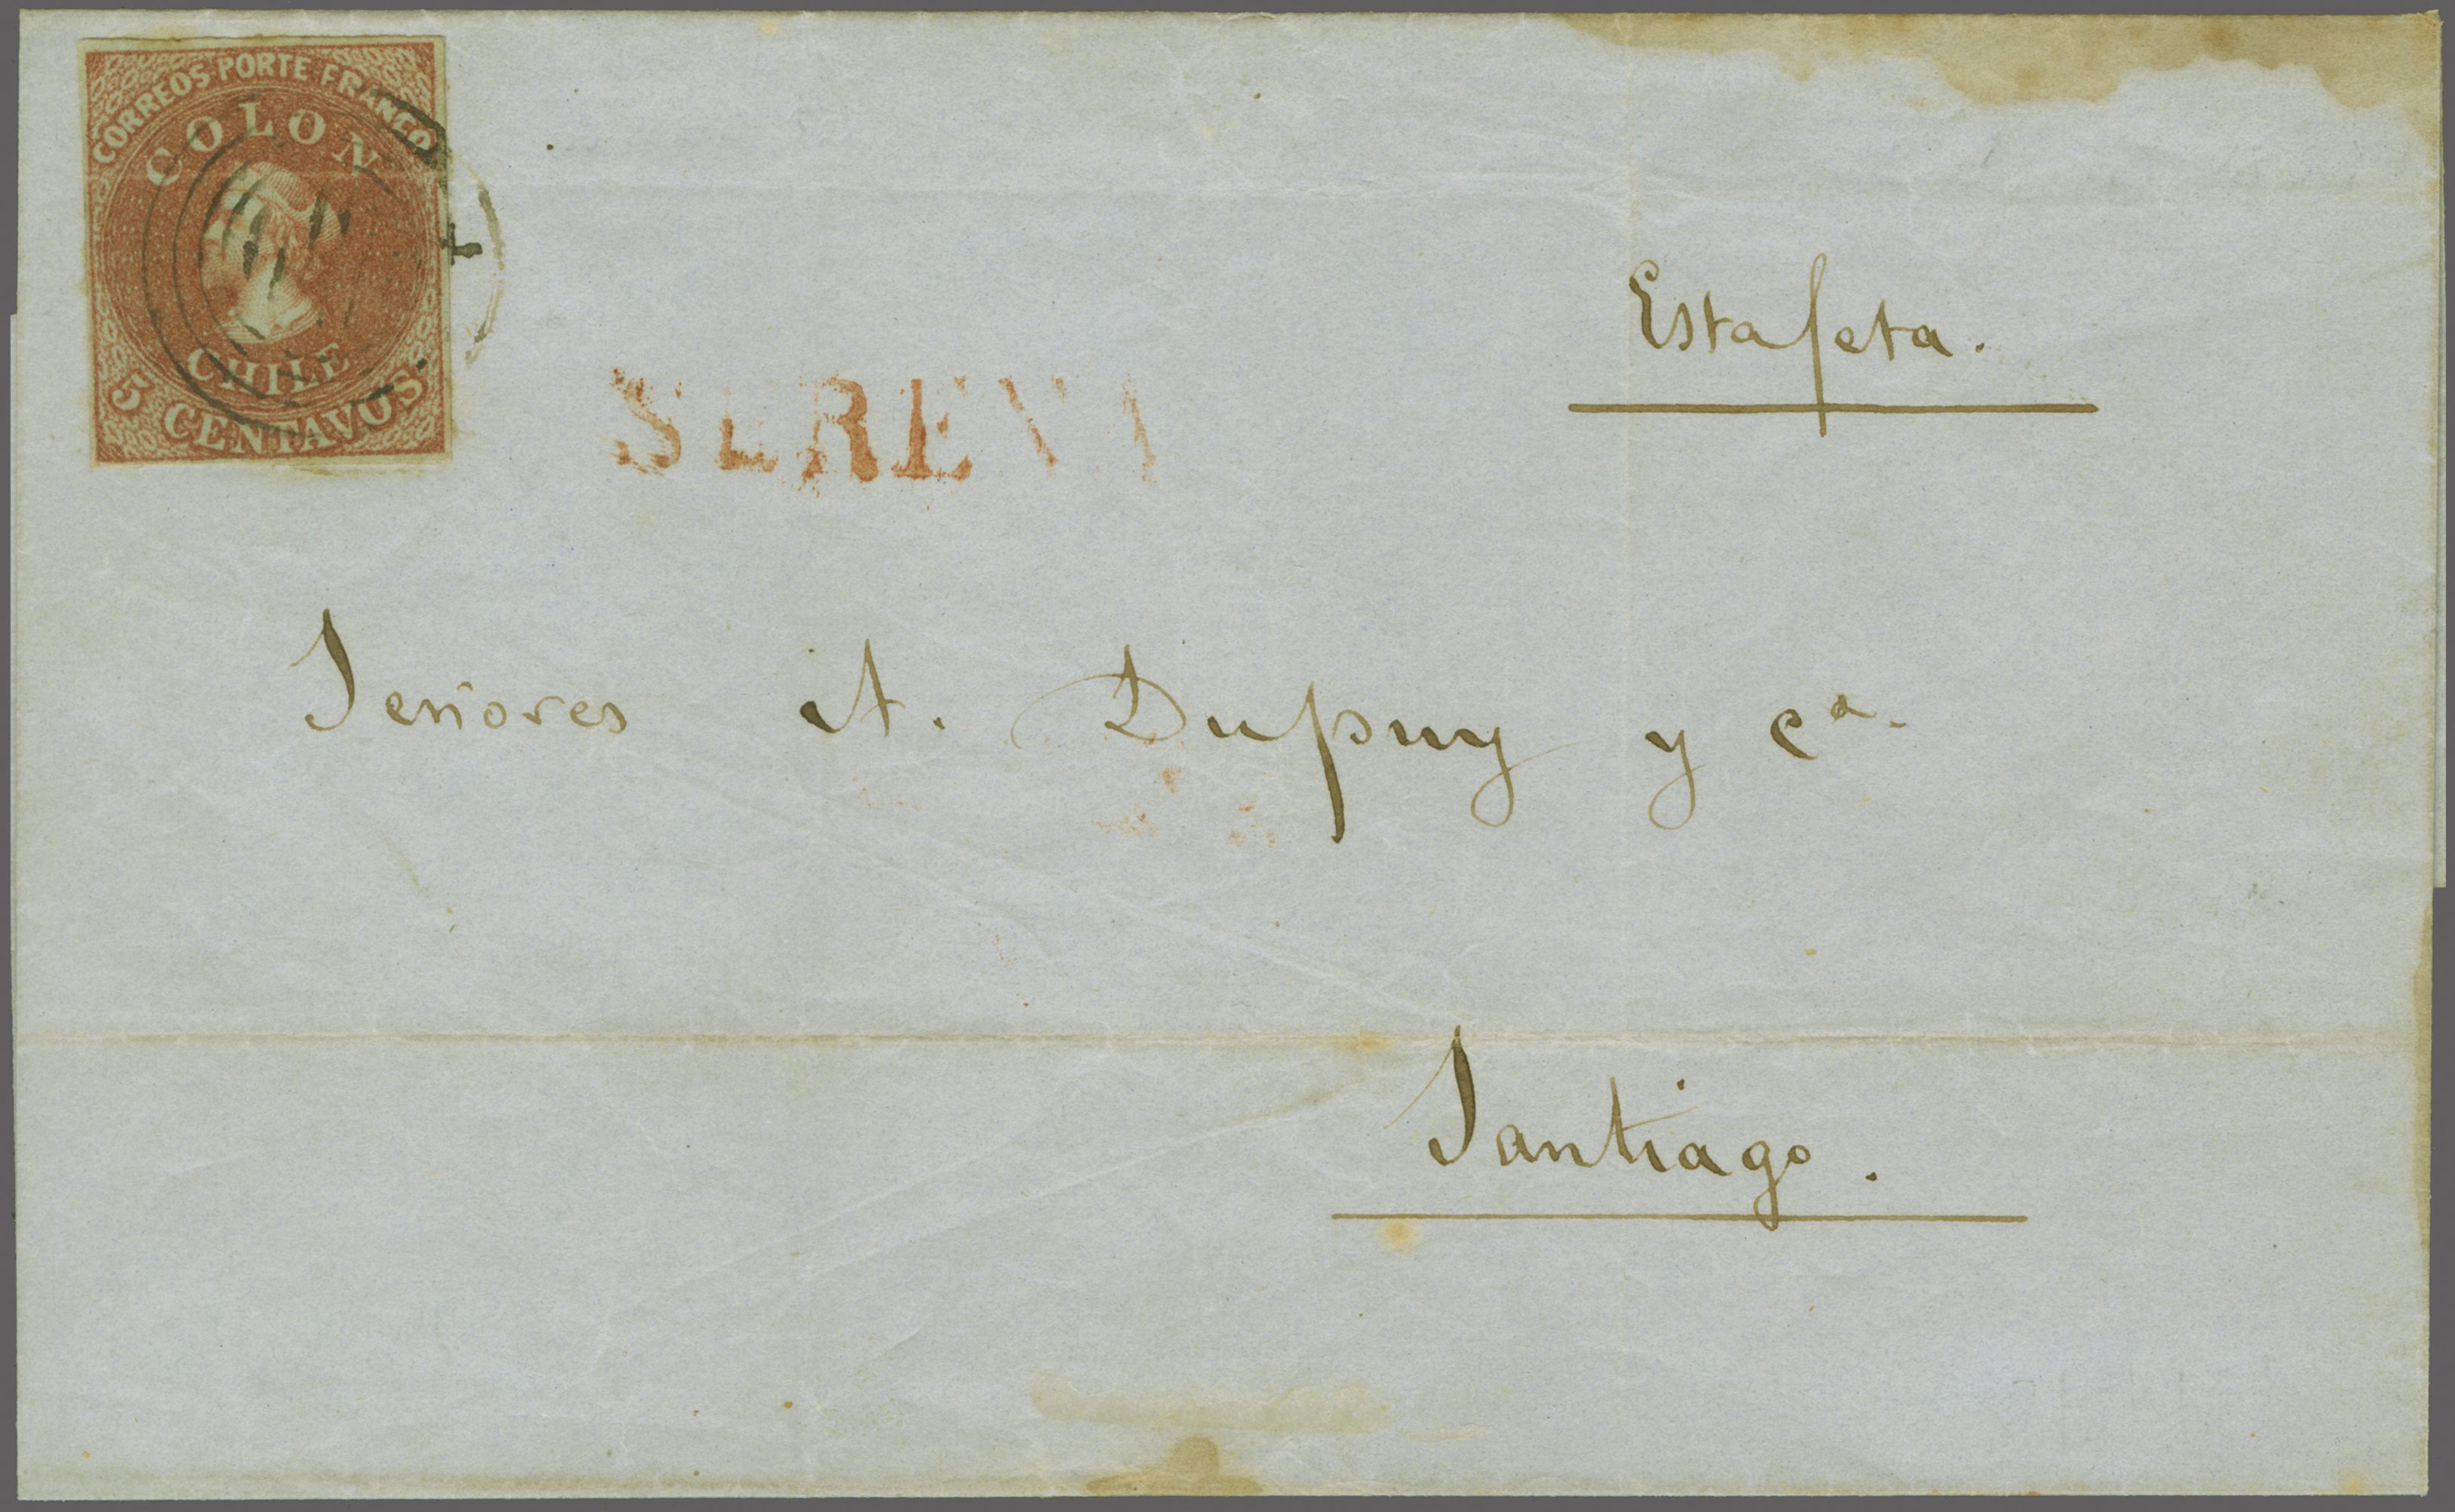 CORREOS PORTE FRANCO
COLON
CHILE
5 CENTAVOS
SERENA
Estafeta.
Señores A. Dupuy y Cª.
Santiago.